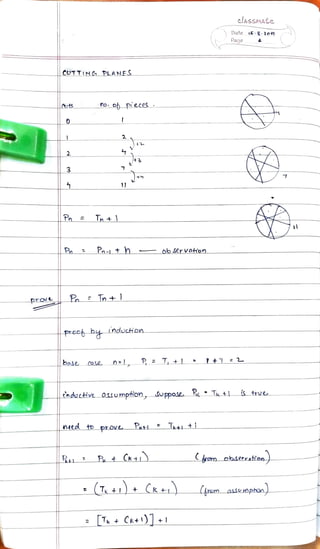 classmate
Date 18·8·2019
Page
CUTTING PLANES
cuts no. of pieces.
0 1
1 2
+2
2 4
+3
3 7
+4
4 11
4
7
11
Pn = Tn + 1
Pn = Pn-1 + n — observation
prove Pn = Tn + 1
proof by induction
base case n=1, P1 = T1 + 1 = 1 + 1 = 2
inductive assumption, suppose Pk = Tk + 1 is true
need to prove Pk+1 = Tk+1 + 1
Pk+1 = Pk + (k+1) (from observation)
= (Tk + 1) + (k+1) (from assumption)
= [Tk + (k+1)] + 1